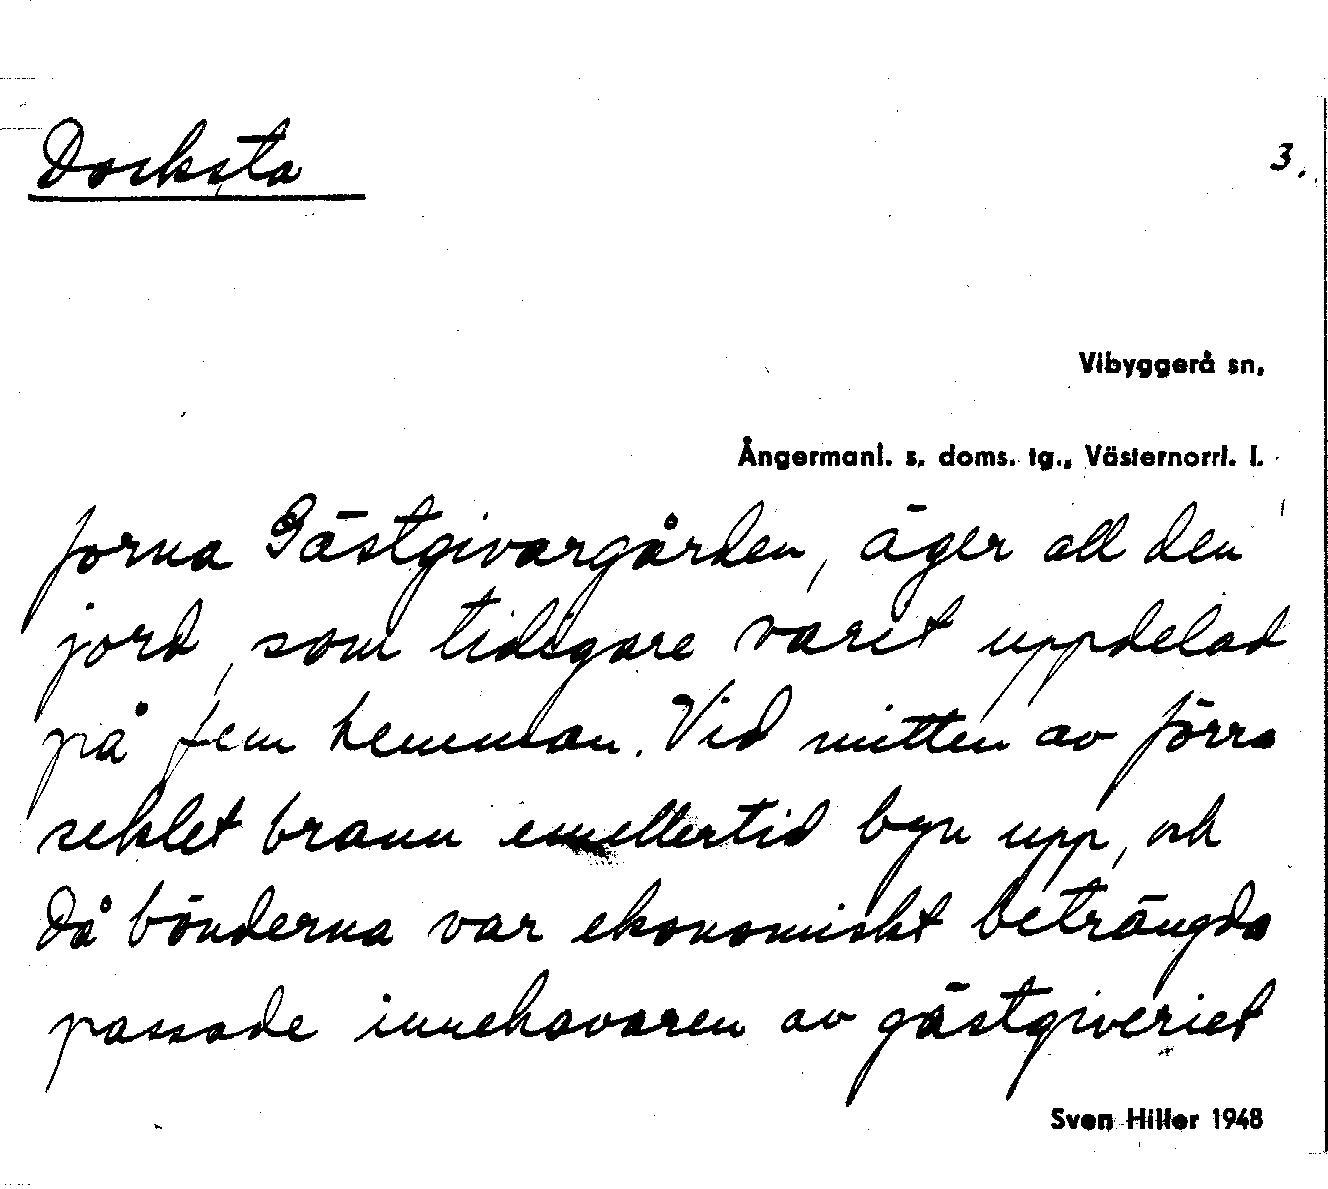 Docksta
3.
Vibyggerå sn,
Ångermanl. s. doms. tg., Västernorrl. l.
forna Gästgivargården, äger all den
jord, som tidigare varit uppdelad
på fem hemman. Vid mitten av förra
seklet brann emellertid byn upp, och
då bönderna var ekonomiskt beträngda
passade innehavaren av gästgiveriet
Sven Hiller 1948